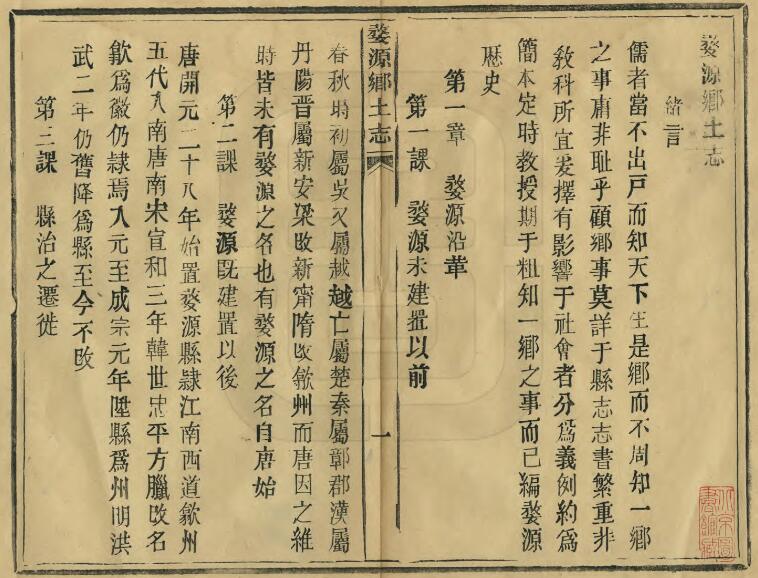 婺源鄉土志
緒言
儒者當不出戸而知天下生是鄉而不周知一鄉
之事庸非耻乎顧鄉事莫詳于縣志志書繁重非
敎科所宜爰擇有影響于社會者分爲義例約爲
簡本定時教授期于粗知一鄉之事而已編婺源
歷史
第一章 婺源沿革
第一課 婺源未建置以前
婺源鄉土志 一
春秋時初屬吳又屬越越亡屬楚秦屬鄣郡漢屬
丹陽晋屬新安梁改新甯隋改歙州而唐因之維
時皆未有婺源之名也有婺源之名自唐始
第二課 婺源旣建置以後
唐開元二十八年始置婺源縣隸江南西道歙州
五代入南唐南宋宣和三年韓世忠平方臘改名
歙爲徽仍隸焉入元至成宗元年陞縣爲州明洪
武二年仍舊降爲縣至今不改
第三課 縣治之遷徙